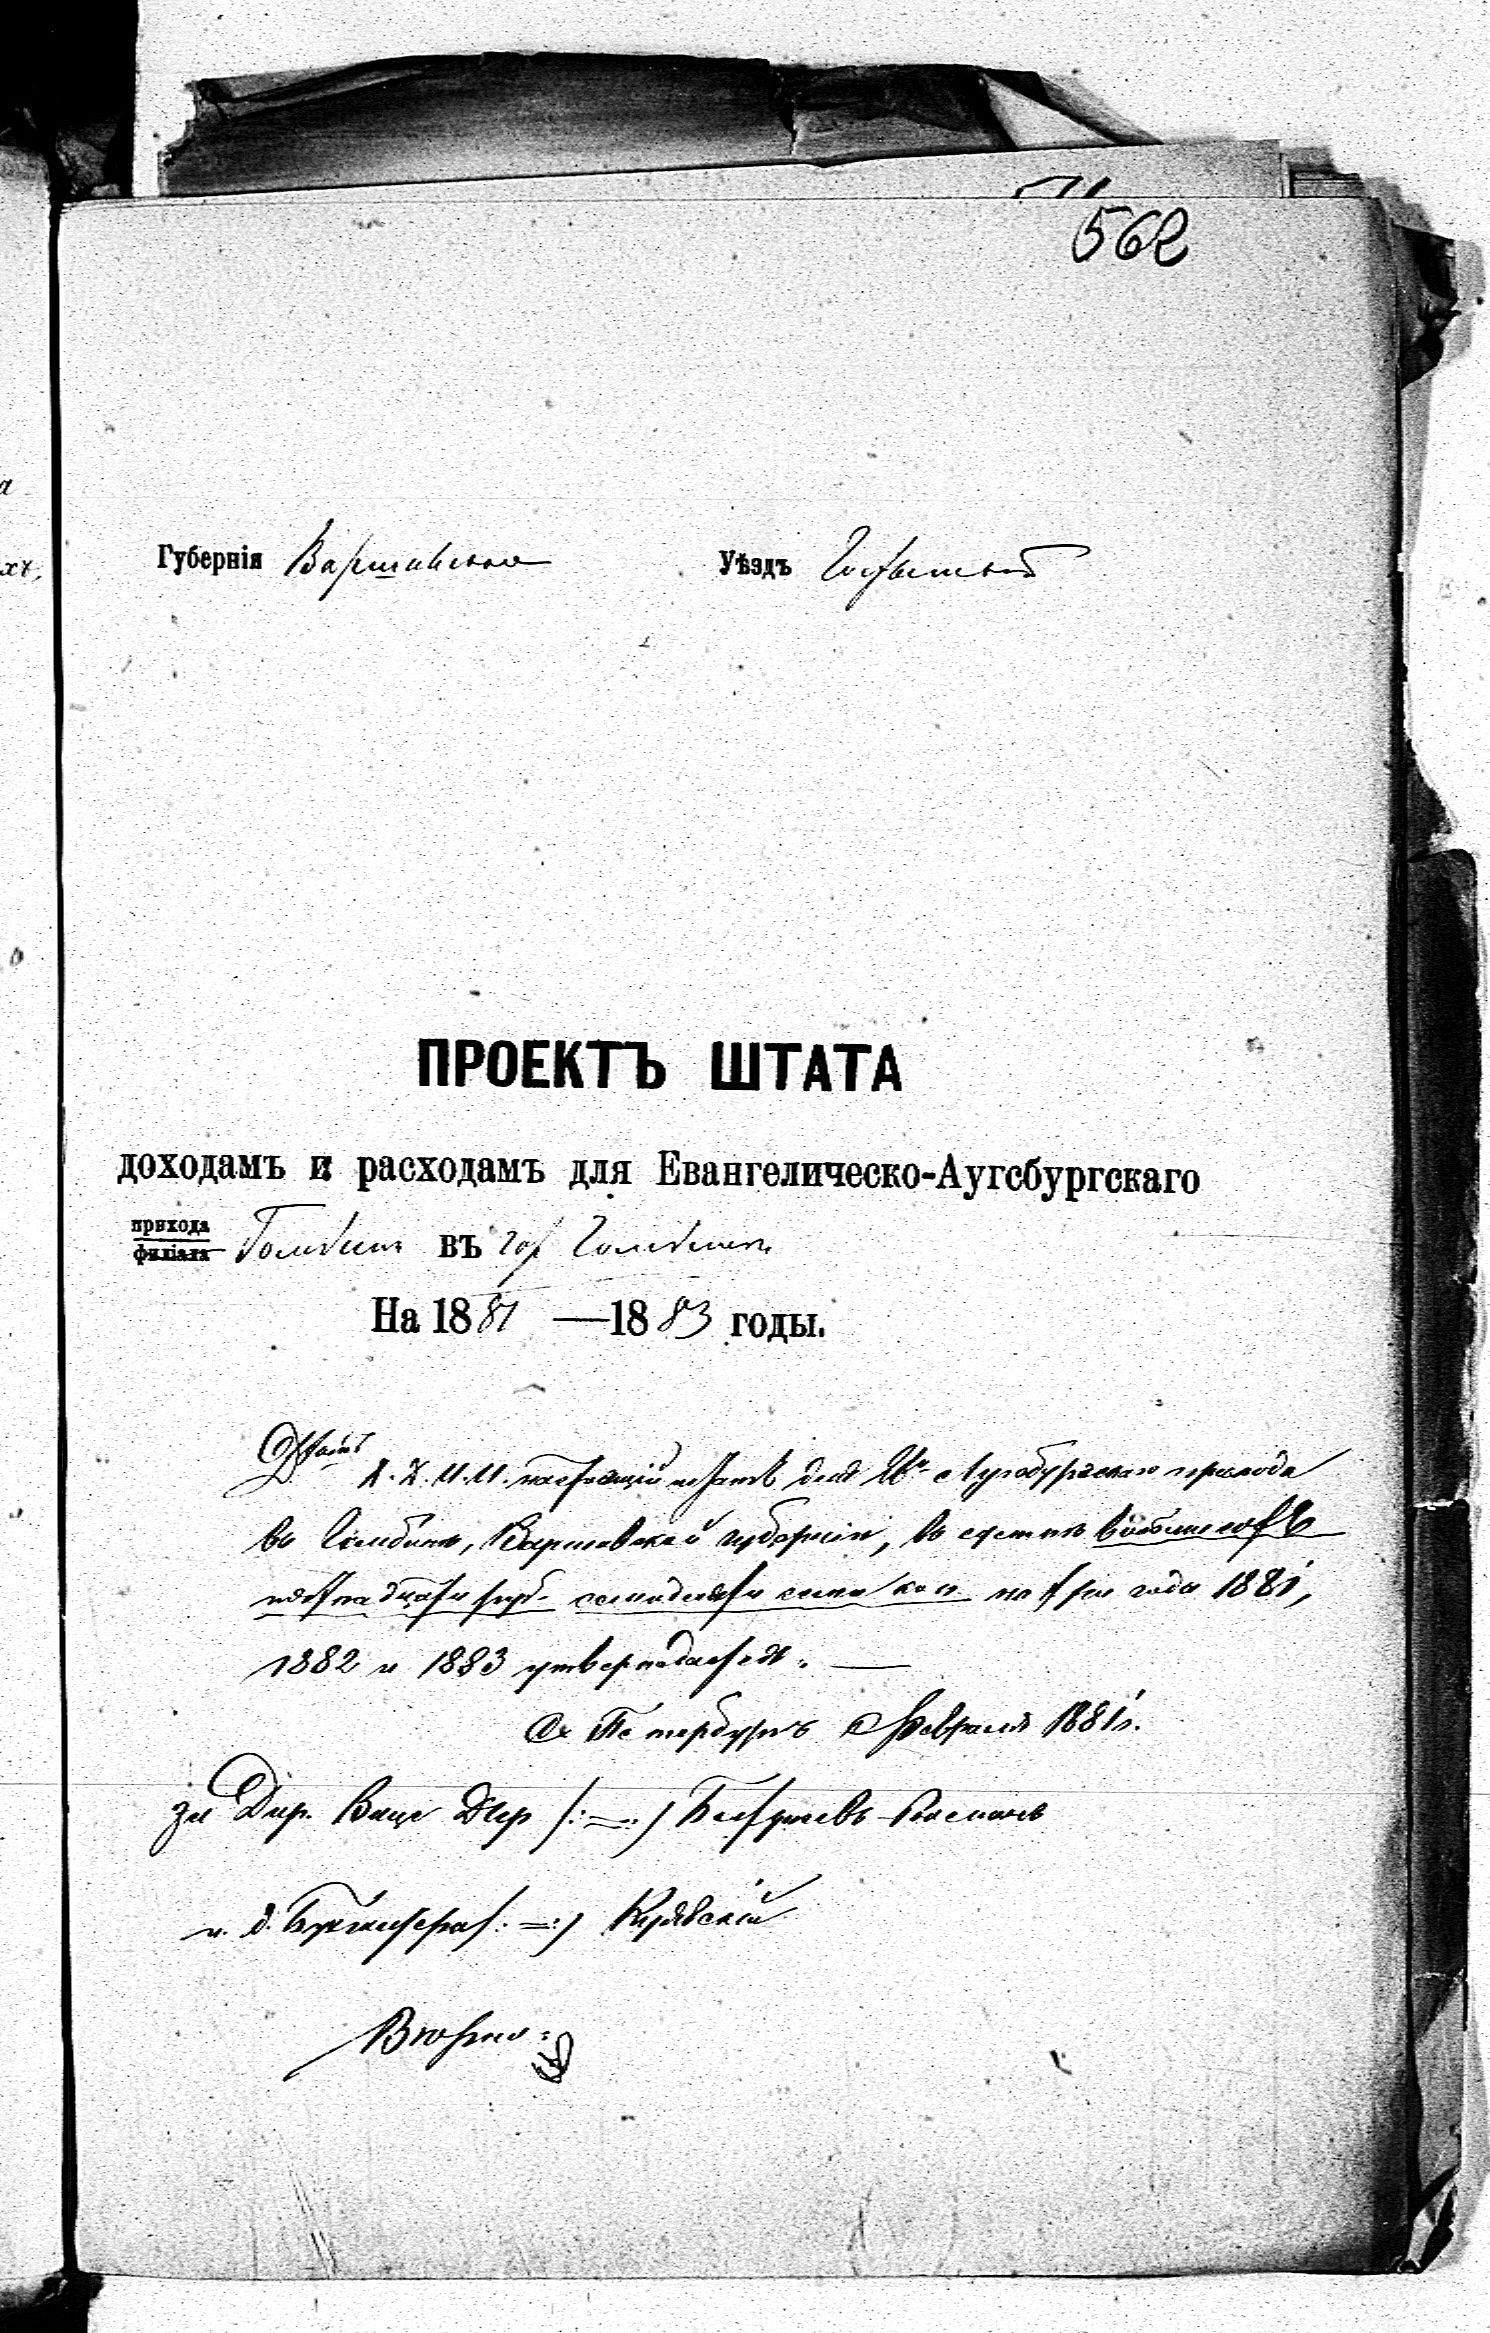 562
Губернія Варшавская Уѣздъ Гостынскій
ПРОЕКТЪ ШТАТА
доходамъ и расходамъ для Евангелическо-Аугсбургскаго
прихода
филіала Гомбинъ въ гор Гомбинѣ
На 1881 —1883 годы.
настоящій штатъ для Ев. Аугсбургскаго прихода
въ Гомбинѣ, Варшавской губерніи, въ суммѣ
надцати руб. семидесяти семи коп на три года 1881,
1882 и 1883 утверждается. —
С. Петербургъ Февраля 1881 г.
за Дир. Вице Дир /:—:/
и. д. /:=:/
Вѣрно: